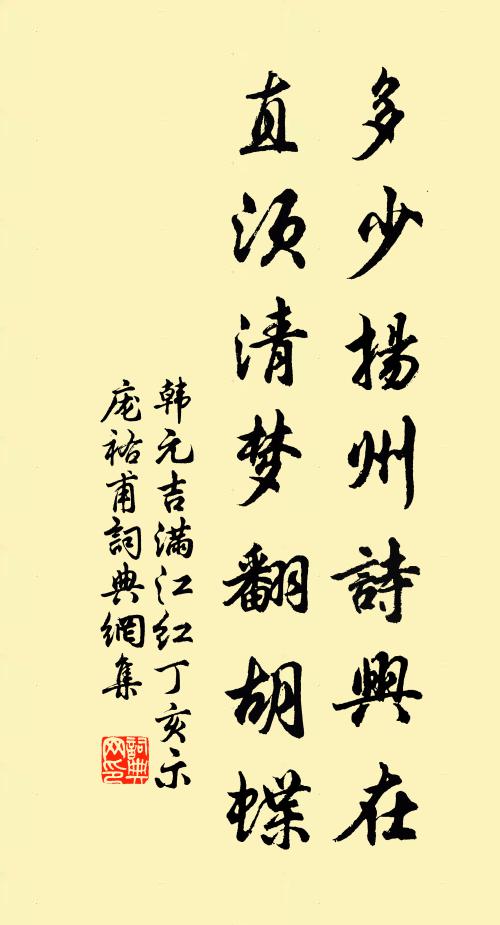 多少揚州詩興在
直须清梦翻胡蝶
韩元吉满江红丁亥示
庞祐甫詞典網集
詞典
网印